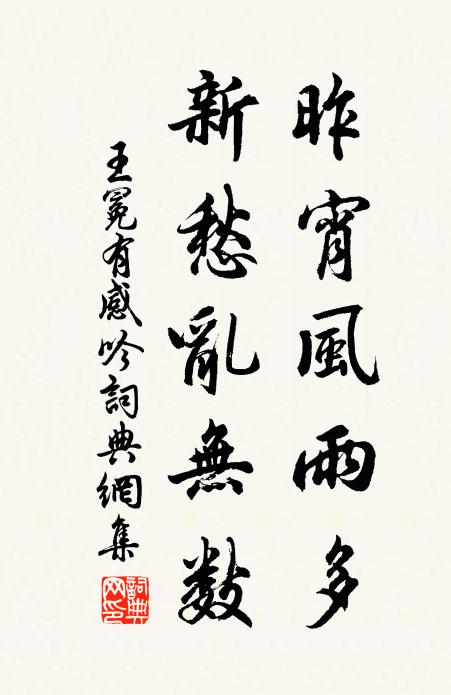 昨宵風雨多
新愁亂無數
王冕有感吟詞典網集
詞典
网印